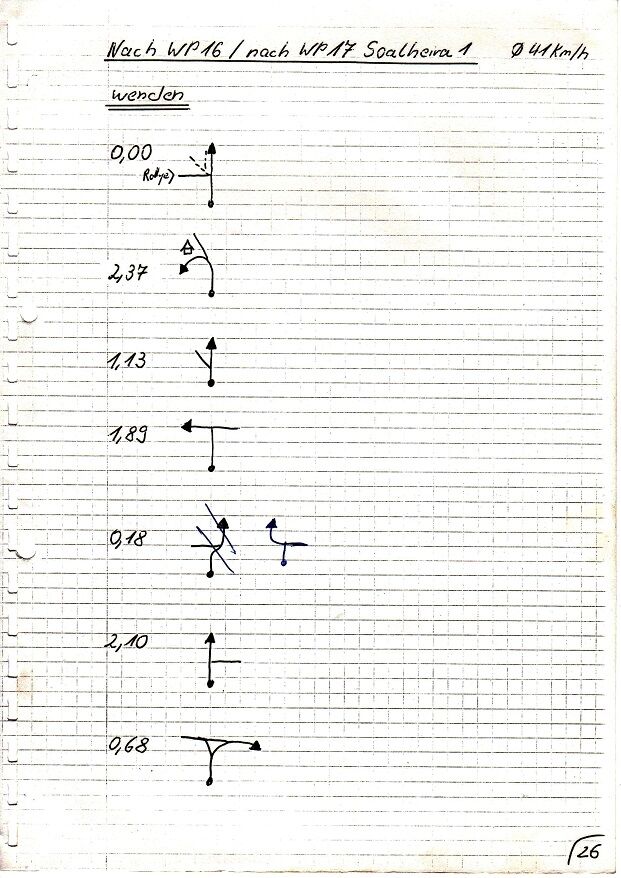 Nach WP16 / nach WP17 Soalheira 1 Ø 41 Km/h
wenden
0,00
2,37
1,13
1,89
0,18
2,10
0,68
26